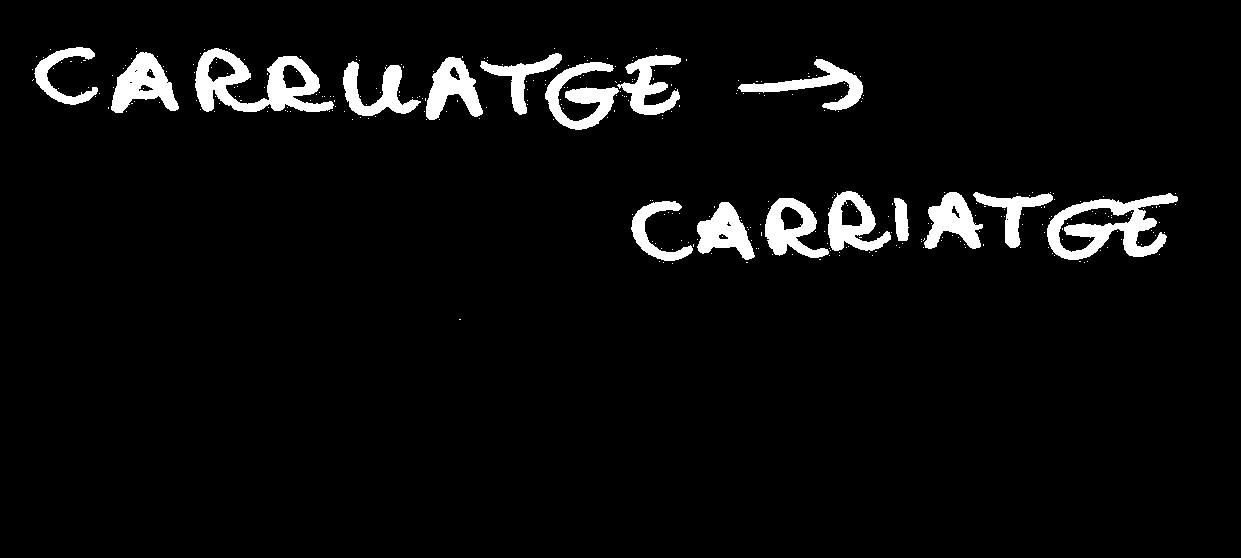 CARRUATGE →
CARRIATGE